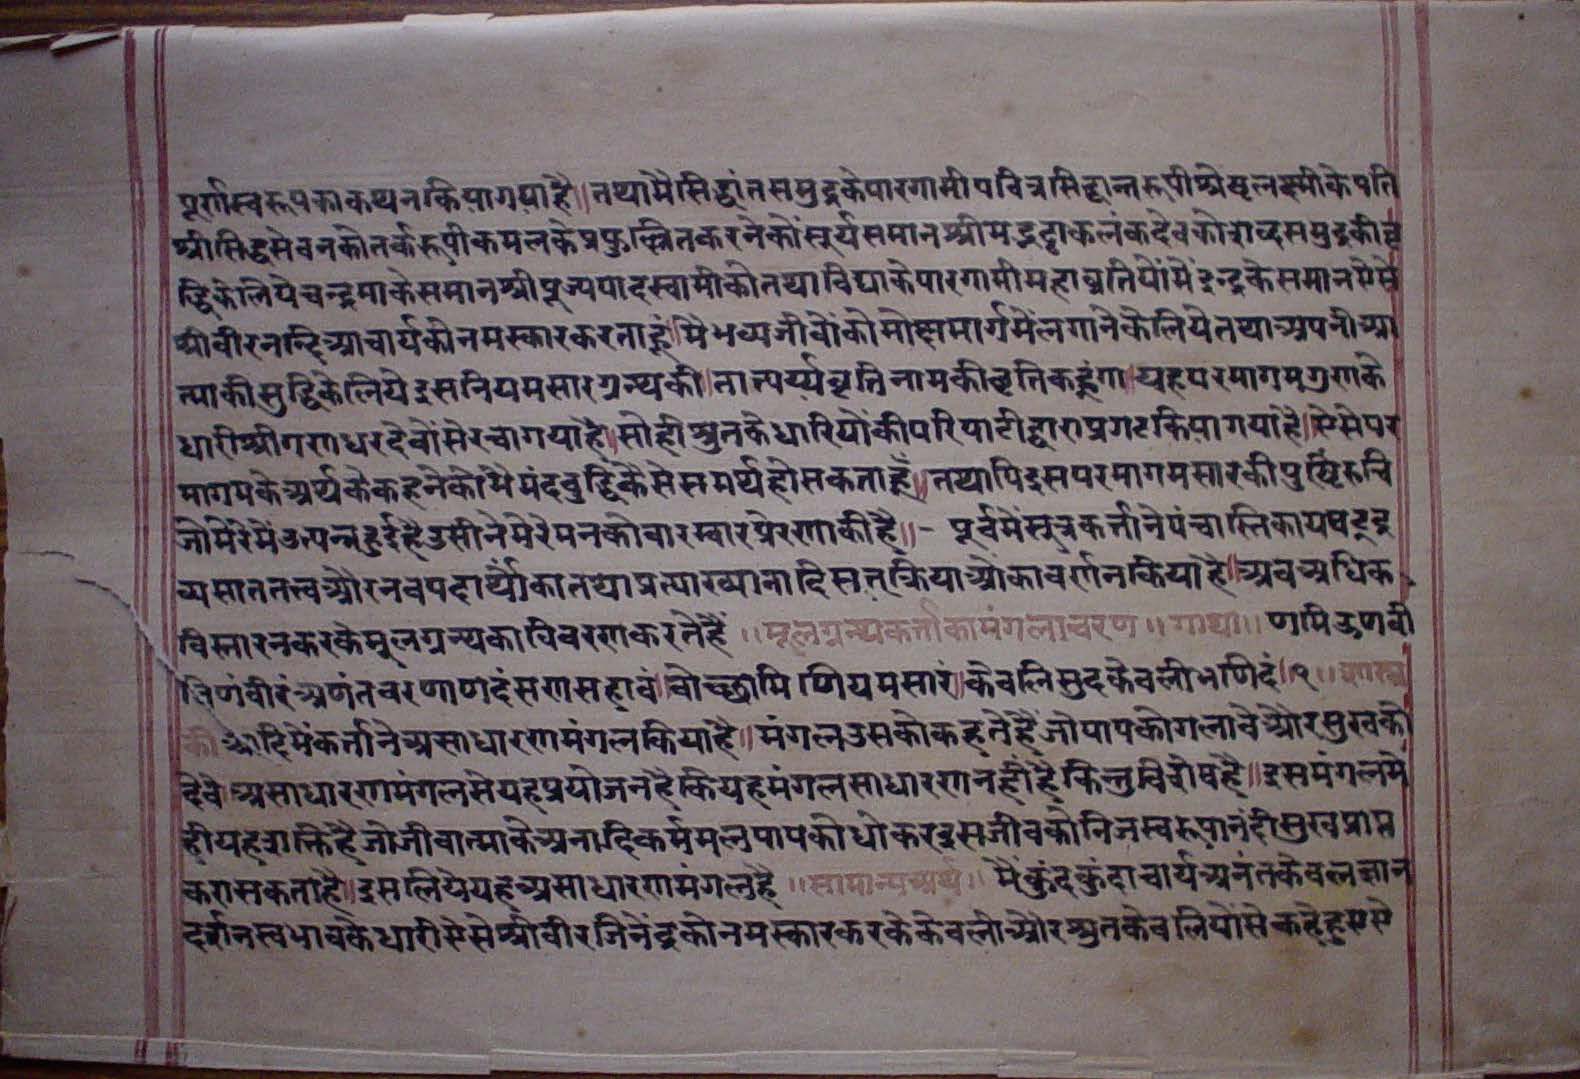 पूर्णस्वरूपकाकथनकियागयाहै॥तथामैसिद्धांतसमुद्रकेपारगामीपवित्रसिद्धान्तरूपीश्रेष्ठलक्ष्मीकेपति
श्रीसिद्धसेवनकोतर्करूपीकमलकेप्रफुल्लितकरनेकोंसूर्यसमानश्रीमद्भट्टाकलंकदेवकोशब्दसमुद्रकीवृ
द्धिकेलियेचन्द्रमाकेसमानश्रीपूज्यपादस्वामीकोतथाविद्याकेपारगामीमहाव्रतियोंमेंइन्द्रकेसमानऐसे
श्रीवीरनन्दिआचार्यकोनमस्कारकरताहूं॥मैभव्यजीवोंकोमोक्षमार्गमेंलगानेकेलियेतथाअपनीआ
त्माकीसुद्धिकेलियेइसनियमसारग्रन्थकी॥तात्पर्य्यवृत्तिनामकीवृत्तिकहूंगा॥यहपरमागमगुणके
धारीश्रीगणधरदेवोंसेरचागयाहै॥सोहीश्रुतकेधारियोंकीपरिपाटीद्वाराप्रगटकियागयाहै॥ऐसेपर
मागमकेअर्थकेकहनेकोमैमंदबुद्धिकैसेसमर्थहोसकताहूँ॥तथापिइसपरमागमसारकीपुष्टिरुचि
जोमेरेमेंउत्पन्नहुईहैउसीनेमेरेमनकोबारम्बारप्रेरणाकीहै॥- पूर्वमेंसूत्रकर्त्तानेपंचास्तिकायषट्द्र
व्यसाततत्त्वऔरनवपदार्थोंकातथाप्रत्याख्यानादिसत्क्रियाओंकावर्णनकियाहै॥अबअधिक
विस्तारनकरकेमूलग्रन्थकाविवरणकरतेहैं ॥मूलग्रन्थकर्त्ताकामंगलाचरण॥गाथा॥ णमिऊणवी
जिणंवीरंअणंतवरणाणदंसणसहावं॥वोच्छामिणियमसारं॥केवलिसुदकेवलीभणिदं॥१॥
कीआदिमेंकर्त्तानेअसाधारणमंगलकियाहै॥मंगलउसकोकहतेहैंजोपापकोगलावेऔरसुखको
देवे॥असाधारणमंगलसेयहप्रयोजनहैकियहमंगलसाधारणनहींहैकिन्तुविशेषहै॥इसमंगलमें
हीयहशक्तिहैजोजीवात्माकेअनादिकर्ममलपापकोधोकरइसजीवकोनिजस्वरूपानंदीसुखप्राप्त
करासकताहै॥इसलियेयहअसाधारणमंगलहै ॥सामान्यअर्थ॥ मैंकुंदकुंदाचार्यअनंतकेवलज्ञान
दर्शनस्वभावकेधारीऐसेश्रीवीरजिनेंद्रकोनमस्कारकरकेकेवलीऔरश्रुतकेवलियोंसेकहेहुएऐसे